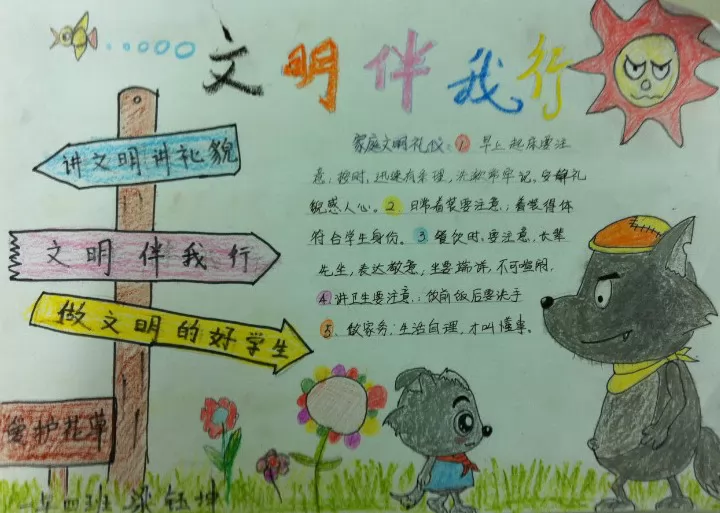 文明伴我行
讲文明讲礼貌
文明伴我行
做文明的好学生
爱护花草
家庭文明礼仪:1 早上起床要注
意,按时,迅速有条理,洗漱牢牢记,安静礼
貌感人心。2、日常着装要注意:着装得体
符合学生身份。3、餐饮时,要注意,长辈
先坐,表达敬意,坐要端详,不可喧闹.
4、讲卫生要注意:饭前饭后要洗手
5、做家务:生活自理,才叫懂事.
四班 梁钰坤